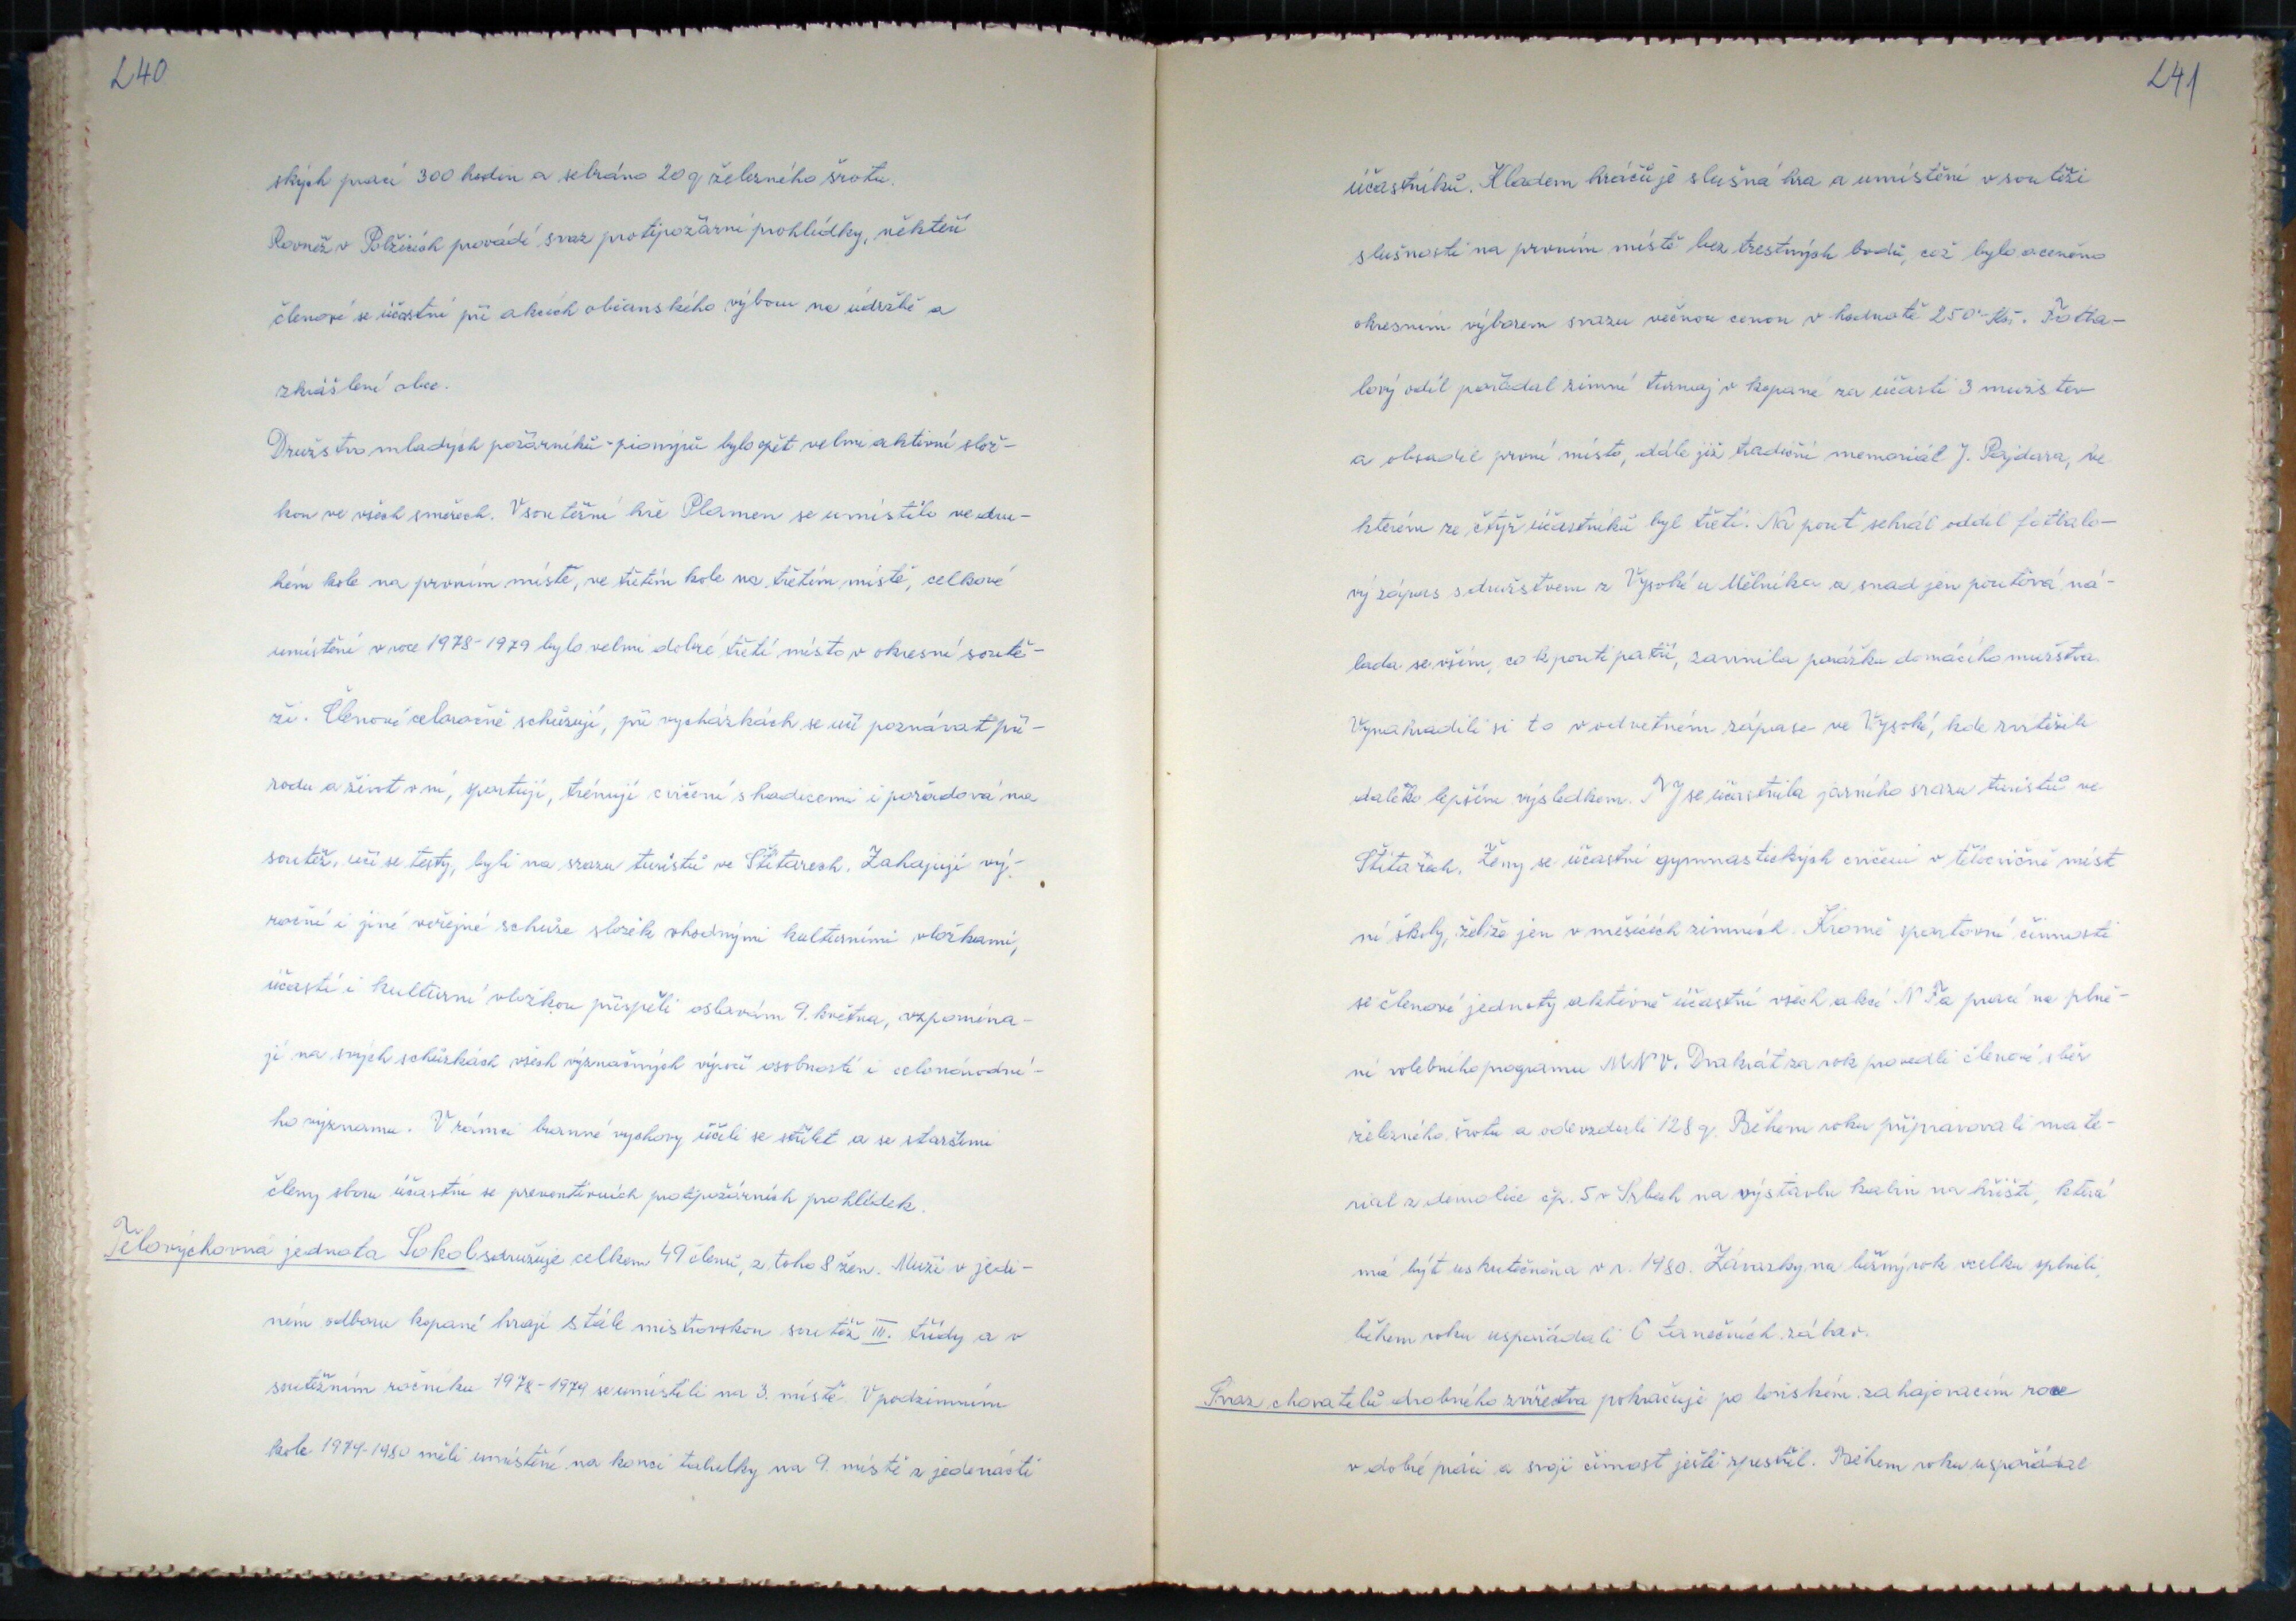 240
ských prací 300 hodin a sebráno 20 q železného šrotu.
Rovněž v Polžicích provádí svaz protipožární prohlídky, někteří
členové se účastní při akcích občanského výboru na údržbě a
zkrášlení obce.
Družstvo mladých požárníků - pionýrů bylo opět velmi aktivní slož-
kou ve všech směrech. V soutěžní hře Plamen se umístilo ve dru-
hém kole na prvním místě, ve třetím kole na třetím místě, celkové
umístění v roce 1978-1979 bylo velmi dobré třetí místo v okresní soutě-
ži. Členové celoročně schůzují, při vycházkách se učí poznávat pří-
rodu a život v ní, sportují, trénují cvičení s hadicemi i pořadová na
soutěž, učí se testy, byli na srazu turistů ve Štítarech. Zahajují vý-
roční i jiné veřejné schůze složek vhodnými kulturními vložkami,
účastí i kulturní vložkou přispěli oslavám 9. května, vzpomína-
jí na svých schůzkách všech význačných výročí osobností i celonárodní-
ho významu. V rámci branné výchovy učili se střílet a se staršími
členy sboru účastní se preventivních protipožárních prohlídek.
Tělovýchovná jednota Sokol sdružuje celkem 49 členů, z toho 8 žen. Muži v jedi-
ném odboru kopané hrají stále mistrovskou soutěž III. třídy a v
soutěžním ročníku 1978-1979 se umístili na 3. místě. V podzimním
kole 1979-1980 měli umístění na konci tabulky na 9. místě z jedenácti
241
účastníků. Kladem hráčů je slušná hra a umístění v soutěži
slušnosti na prvním místě bez trestných bodů, což bylo oceněno
okresním výborem svazu věčnou cenou v hodnotě 250,- Kčs. Fotba-
lový odíl pořádal zimní turnaj v kopané za účasti 3 mužstev
a obsadil první místo, dále již tradiční memoriál J. Pajdara, ve
kterém ze čtyř účastníků byl třetí. Na pouť sehrál oddíl fotbalo-
vý zápas s družstvem z Vysoké u Mělníka a snad jen pouťová ná-
lada se vším, co k pouti patří, zavinila porážku domácího mužstva.
Vynahradili si to v odvetném zápase ve Vysoké, kde zvítězili
daleko lepším výsledkem. TJ se účastnila jarního srazu turistů ve
Štítarech. Ženy se účastní gymnastických cvičení v tělocvičně míst
ní školy, želže jen v měsících zimních. Kromě sportovní činnosti
se členové jednoty aktivně účastní všech akcí NF a prací na plně-
ní volebního programu MNV. Dvakrát za rok provedli členové sběr
železného šrotu a odevzdali 128 q. Během roku připravovali mate-
riál z demolice čp. 5 v Srbech na výstavbu kabin na hřišti, která
má být uskutečněna v r. 1980. Závazky na běžný rok vcelku splnili,
během roku uspořádali 6 tanečních zábav.
Svaz chovatelů drobného zvířectva pokračuje po loňském zahajovacím roce
v dobré práci a svoji činnost ještě zpestřil. Během roku uspořádal